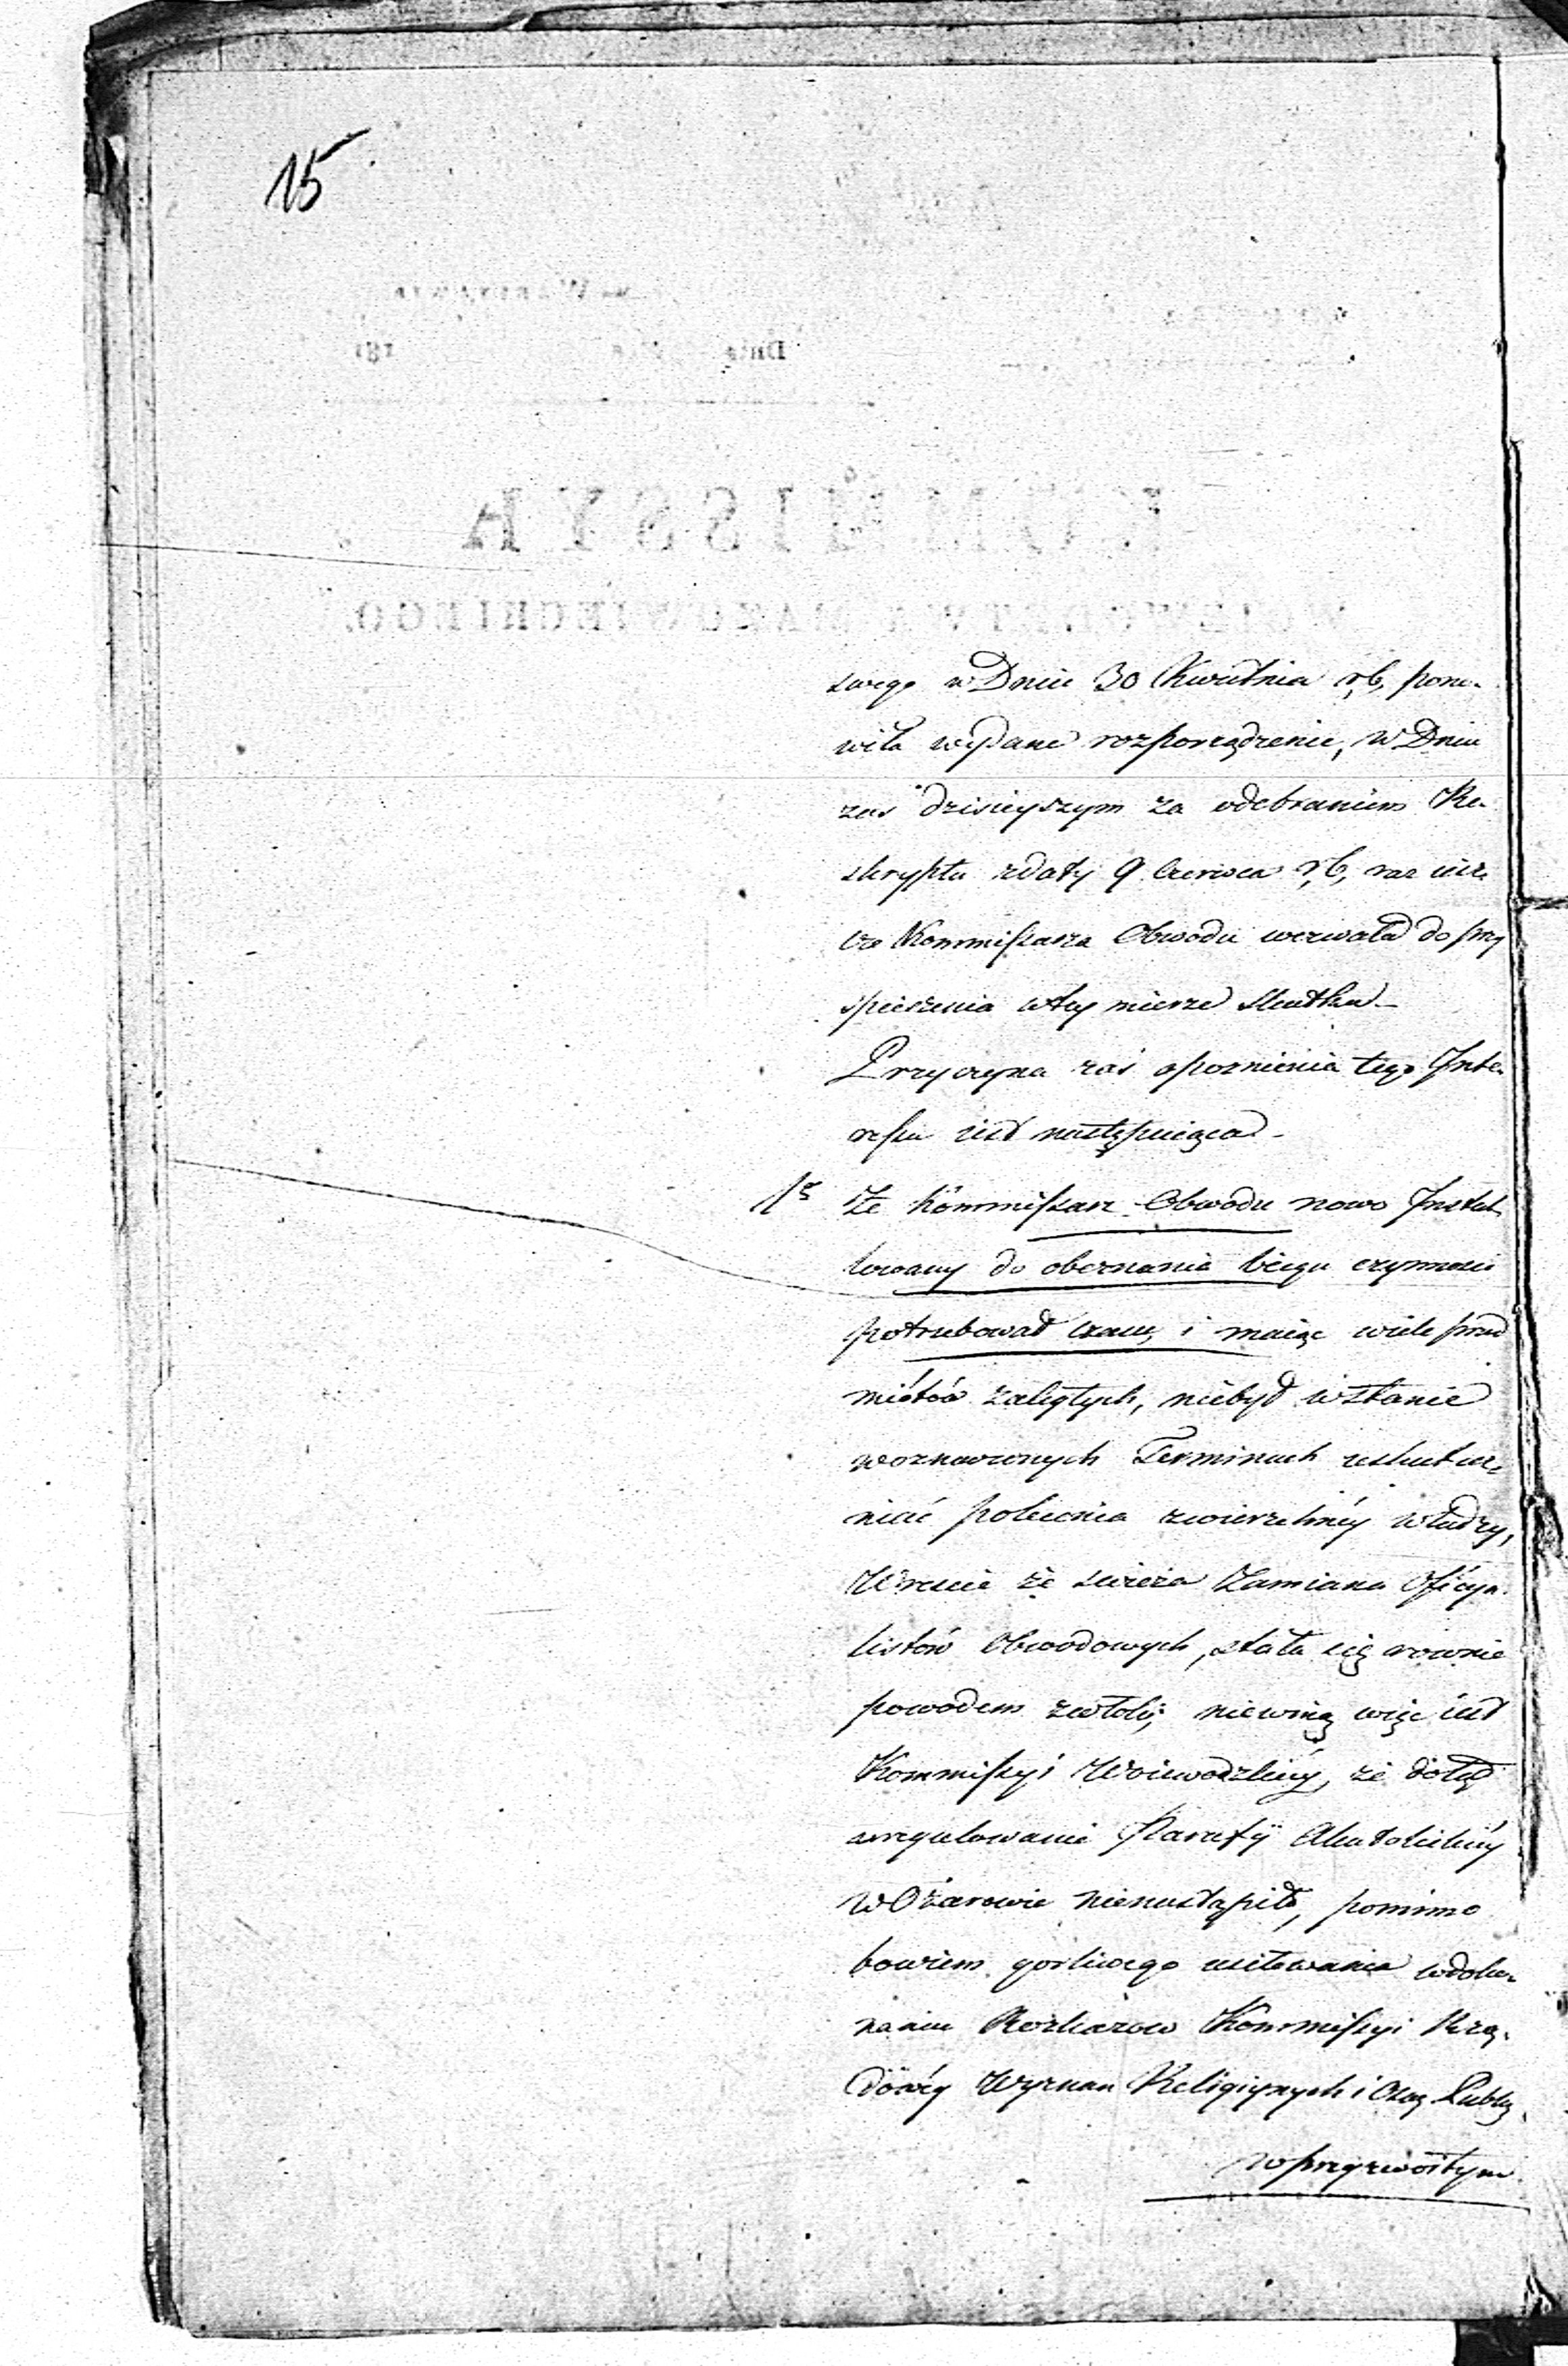 15
swego w Dniu 30 Kwietnia r, b, pono-
wiła wydane rozporządzenie, w Dniu
zaś dzisieyszym za odebraniem Re-
skryptu z daty 9 Czerwca r, b, raz iesz-
cze Kommissarza Obwodu wezwała do przy
spieszenia w tey mierze skutku -
Przyczyna zaś opoznienia tego Inte-
ressu iest następuiąca -
1º że Kommissarz Obwodu nowo Instal-
lowany do obeznania biegu czynnosci
potrzebował czasu, i maiąc wiele przed
miotów zaległych, niebył w stanie
w oznaczonych Terminach uskutecz-
niać polecenia zwierzchniey władzy,
Wreście że świeża Zamiana Oficya-
listów Obwodowych, stała się rownie
powodem zwłoki; niewiną więc iest
Kommissyi Woiewodzkiey, że dotąd
uregulowanie Parafij Akatolickiey
w Ożarowie nienastąpiło, pomimo
bowiem gorliwego usiłowania w doko-
naniu Rozkazow Kommissyi Rzą-
dowey Wyznan Religiynych i Ośw. Publ:
w przyzwoitym